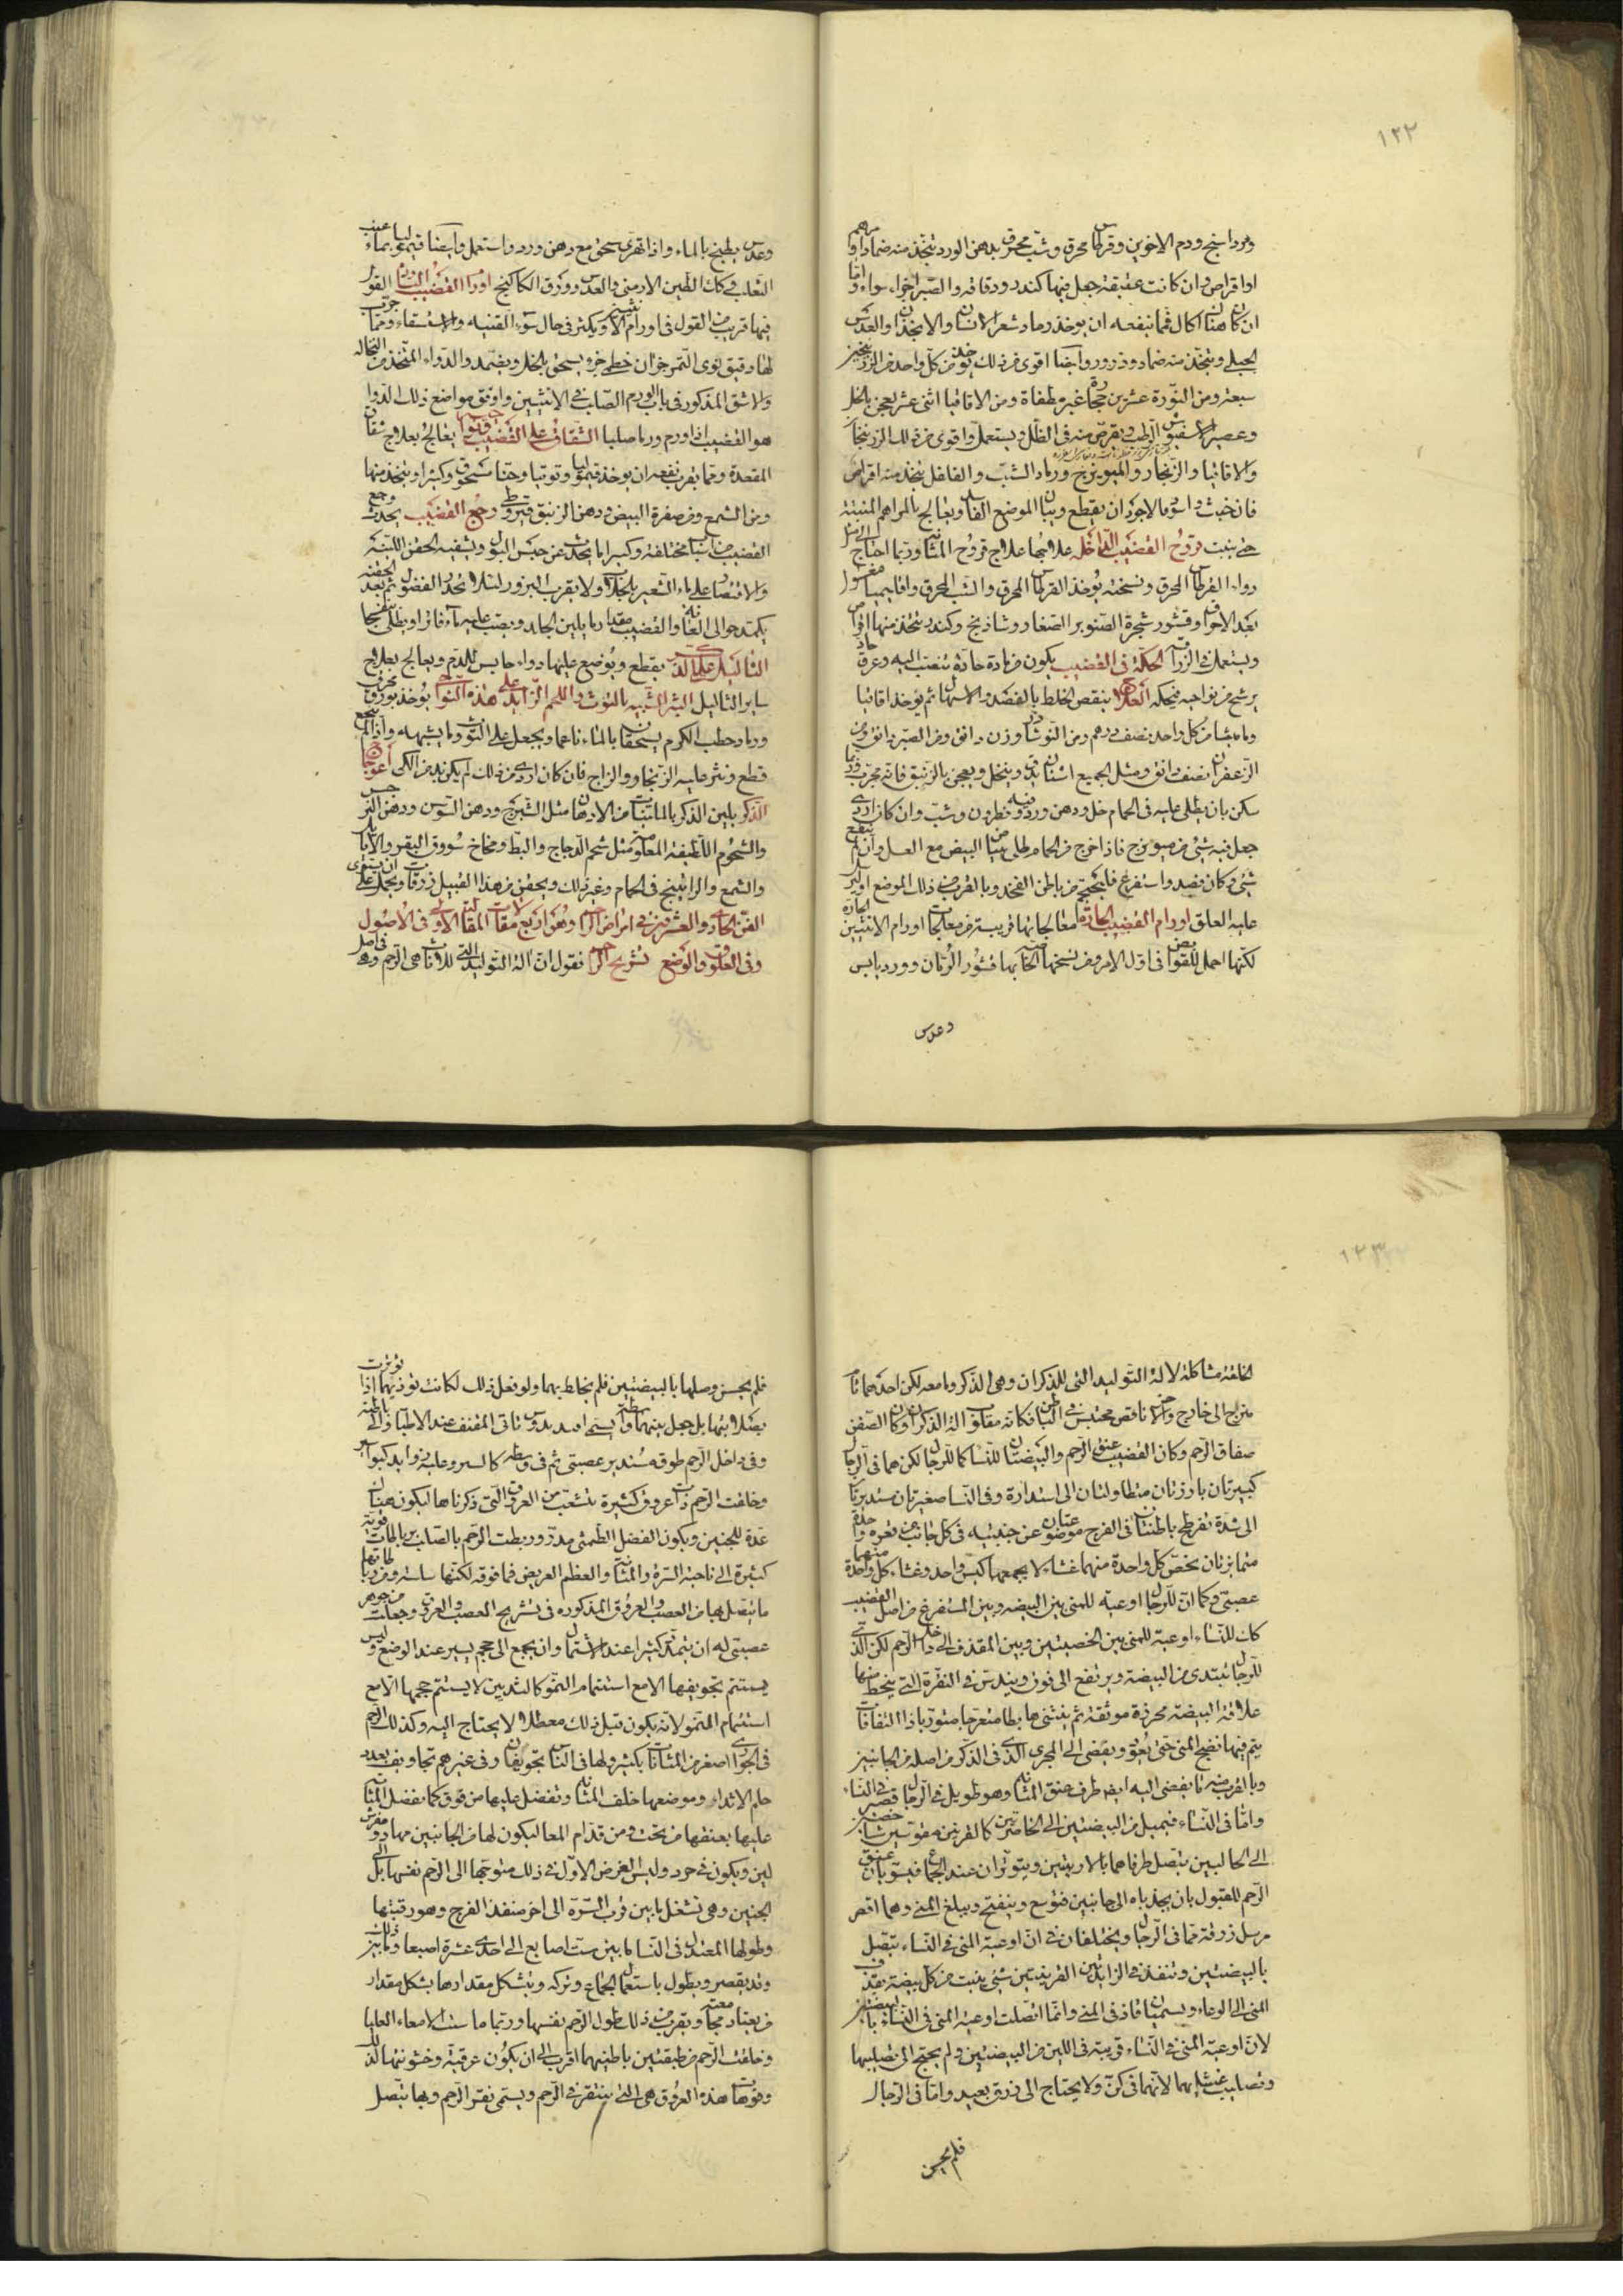 ١٢٢
ومرداسنج ودم الاخوين وقرطاس محرق وشب محرق بدهن الورد يتخذ منه ضماد او مرهم
او اقراص وان كانت عتيقة جعل فيها كندر ودقاقه والصبر اجزاء سواء واما
ان كان هناك اكال فمما ينفعه ان يوخذ رماد شعر الانسان والانجذان والعدس
الجبلى ويتخذ منه ضماد وذرور وايضا اقوى من ذلك يوخذ من كل واحد من الزرنيخين
سبعة ومن النورة عشرين حجارة غير مطفاة ومن الاقاقيا اثنى عشر يعجن بالخل
وعصير الرطب ويقرص منه فى الظل ويستعمل واقوى من ذلك الزرنيخان
والاقاقيا والزنجار والميويزج ورماد الشب والفلفل يتخذ منه اقراص
فان خبث واسود فالاجود ان يقطع ويبان الموضع الفاسد ويعالج بالمراهم المنبتة
حتى ينبت قروح القضيب الداخله علاجها علاج قروح المثانة وربما احتاج الى مثل
دواء القرطاس المحرق ونسخته يوخذ القرطاس المحرق والشب المحرق واقليميا مغسول
بعد الاحراق وقشور شجرة الصنوبر الصغار وشاذنج وكندر يتخذ منها اقراص
ويستعمل فى الزراقة الحكة فى القضيب يكون من مادة حادة تنصب اليه وعرق حاد
يرشح من نواحيه فيحكه العلاج ينقص الخلط بالفصد والاسهال ثم يوخذ اقاقيا
وماميثا من كل واحد نصف درهم ومن النوشادر وزن دانق ومن الصبر دانق ومن
الزعفران نصف دانق ومثل الجميع اشنان يدق وينخل ويعجن بالزنبق فانه مجرب وربما
سكن بان يطلى عليه فى الحمام خل ودهن ورد وفيه نطرون وشب وان كان اردى
جعل فيه شىء من ميويزج فاذا خرج من الحمام طلى ببياض البيض مع العسل وان لم ينقطع
شىء وكان فصد واستفرغ فليحجم من باطن الفخذ وبالقرب من ذلك الموضع او يرسل
عليه العلق اورام القضيب الحارة معالجاتها قريبة من معالجات اورام الانثيين الحارة
لكنها احمل للقوابض فى اول الامر ومن نسخها الخاصة بها قشور الرمان وورد يابس
وعدس
وعدس يطبخ بالماء واذا تهرى سحق مع دهن ورد واستعمل وايضا قيموليا بماء عنب
الثعلب وكذلك الطين الارمنى والعدس وورق الكاكنج اورام القضيب الباردة القول
فيها قريب من القول فى اورام الانثيين ويكثر فى حال سوء القنيه والاستسقاء ومما جرب
لها دقيق نوى التمر جزآن خطمى جزء يسحق بالخل ويضمد والدواء المتخذ من النخاله
والاشق المذكور فى باب الورم الصلب فى الانثيين واوفق مواضع ذلك الدوا
هو القضيب اذا ورم ورما صلبا الشقاق على القضيب يعالج بعلاج شقاق
المقعدة ومما يقرب نفعه ان يوخذ قيموليا وتوتيا وحنا مسحوق وكثيرا ويتخذ منها
ومن الشمع ومن صفرة البيض ودهن الزنبق قيروطى وجع القضيب يحدث وجع
القضيب من اسباب مختلفة وكثيرا ما يحدث عن حبس البول ويشفيه الحقن اللينه
والاقتصار على ماء الشعير بالجلاب ولا يقرب البزور لئلا تحدر الفضول ثم بعد الحقنه
يكمد حوالى العانة والقضيب ويصب عليه ماء فاتر
الثاليل على الذكر يقطع ويوضع عليها دواء حابس للدم ويعالج بعلاج
ساير الثاليل البثر الشبيه بالتوث واللحم الزايد على هذه النواحى يوخذ بورق محرق
ورماد حطب الكرم يسحقان بالماء ناعما ويجعل على التوث وما يشبهه واذا لم ينجع
قطع ونثر عليه الزنجار والزاج فان كان اردى من ذلك لم يكن بد من الكى اعوجاج
الذكر يلين الذكر بالملينات من الادهان مثل الشيرج ودهن السوسن ودهن النرجس
والشحوم اللطيفة المعلومة مثل شحم الدجاج والبط ومخاخ سووق البقر والايايل
والشمع والراتينج فى الحمام وغير ذلك ويحقن من هذا القبيل زرقات ويجعل على ان يستوى
الفن الحادى والعشرون فى امراض الرحم وهى اربع مقالات المقالة الاولى فى الاصول
وفى العلوق والوضع تشريح الرحم نقول ان الة التوليد التى للاناث هى الرحم وهى فى اصل
١٢٣
الخلقة مشاكلة لالة التوليد التى للذكران وهى الذكر وما معه لكن احداهما تام
متبرج الى خارج والاخر ناقص محتبس فى الباطن فكانه مقلوب الة الذكران وكان الصفن
صفاق الرحم وكان القضيب عنق الرحم والبيضتان للنساء كما للرجال لكن هما فى الرجال
كبيرتان بارزتان متطاولتان الى استدارة وفى النسا صغيرتان مستديرتان
الى شدة تفرطح باطنتان فى الفرج موضوعتان عن جنبتيه فى كل جانب من قعره واحدة
متمايزتان يخص كل واحدة منهما غشاء لا يجمعهما كيس واحد وغشاء كل واحدة منهما
عصبى وكما ان للرجال اوعية للمنى بين البيضه وبين المستفرغ من اصل القضيب
كذلك للنساء اوعية للمنى بين الخصيتين وبين المقذف الى داخل الرحم لكن الذى
للرجال يبتدى من البيضة ويرتفع الى فوق ويندس فى النقرة التى ينحط منها
علاقة البيضة محرزة موثقة ثم ينثنى هابطا متعرجا متوربا ذا التفافات
يتم فيها نضج المنى حتى يعود ويفضى الى المجرى الذى فى الذكر من اصله من الجانبين
وبالقرب منه ما يفضى اليه ايضا طرف عنق المثانة وهو طويل فى الرجال قصير فى النساء
واما فى النساء فيميل من البيضتين الى الخاصرتين كالقرنين مقوسين شاخصين
الى الحالبين يتصل طرفاهما بالاربيتين ويتوتران عند الجماع فيسويان عنق
الرحم للقبول بان يجذباه الى جانبين فتوسع وينفتح ويبلع المنى وهما اقصر
مرسل زرقة مما فى الرجال ويختلفان فى ان اوعية المنى فى النساء تتصل
بالبيضتين وتنفذ فى الزايدتين القرنيتين شىء ينبت من كل بيضة يقذف
المنى الى الوعاء ويسميان قاذفى المنى وانما اتصلت اوعية المنى فى النساء بالبيضتين
لان اوعية المنى فى النساء قريبة فى اللين من البيضتين ولم يحتج الى تصليبها
وتصليب غشائهما لانهما فى كن ولا يحتاج الى زرق بعيد واما فى الرجال
فلم يحسن
فلم يحسن وصلها بالبيضتين فلم يخلط بهما ولو فعل ذلك لكانت توذيهما اذا توترت
بصلابتها بل جعل بينهما واسطة تسمى افيديدومس تاتى المقنف عند الاطباء الى باطنه
وفى داخل الرحم طوق مستدير عصبى ثم فى وسطه كالسير وعليه زوايد كبواسير
وخلقت الرحم ذات عروق كثيرة تتشعب من العروق التى ذكرناها ليكون هناك
عدة للجنين ويكون الفضل الطمثى مدر وربطت الرحم بالصلب برباطات قوية
كثيرة الى ناحية السرة والمثانة والعظم العريض فما فوقه لكنها سلسه ومن رباطاتها
ما يتصل بها من العصب والعروق المذكوره فى تشريح العصب والعروق وجعلت من جوهر
عصبى له ان يتمدد كثيرا عند الاشتمال وان يجمع الى حجم يسير عند الوضع وليس
يستتم تجويفها الا مع استتمام النمو كالثديين لا يستتم حجمها الا مع
استتمام النمو لانه يكون قبل ذلك معطلا لا يحتاج اليه وكذلك الرحم
فى الجوارى اصغر من المثانة بكثير ولها فى الناس تجويفان وفى غيرهم تجاويف بعدد
حلم الاثداء وموضعها خلف المثانة وتفضل عليها من فوق كما تفضل المثانة
عليها بعنقها من تحت ومن قدام المعا ليكون لها من الجانبين مهاد ومفرش
لين ويكون فى حرز وليس الغرض الاول فى ذلك متوجها الى الرحم نفسها بل الى
الجنين وهى تشغل ما بين قرب السرة الى اخر منفذ الفرج وهو رقبتها
وطولها المعتدل فى النسا ما بين ست اصابع الى احدى عشرة اصبعا وما بين ذلك
وقد يقصر ويطول باستعمال الجماع وتركه ويتشكل مقدارها بشكل مقدار
من يعتاد مجامعته ويقرب من ذلك طول الرحم نفسها وربما ماست الامعاء العليا
وخلقت الرحم من طبقتين باطنيهما اقرب الى ان يكون عرقية وخشونتها لذلك
وفوهات هذه العروق هى التى تنتقر فى الرحم ويسمى نقر الرحم وبها يتصل